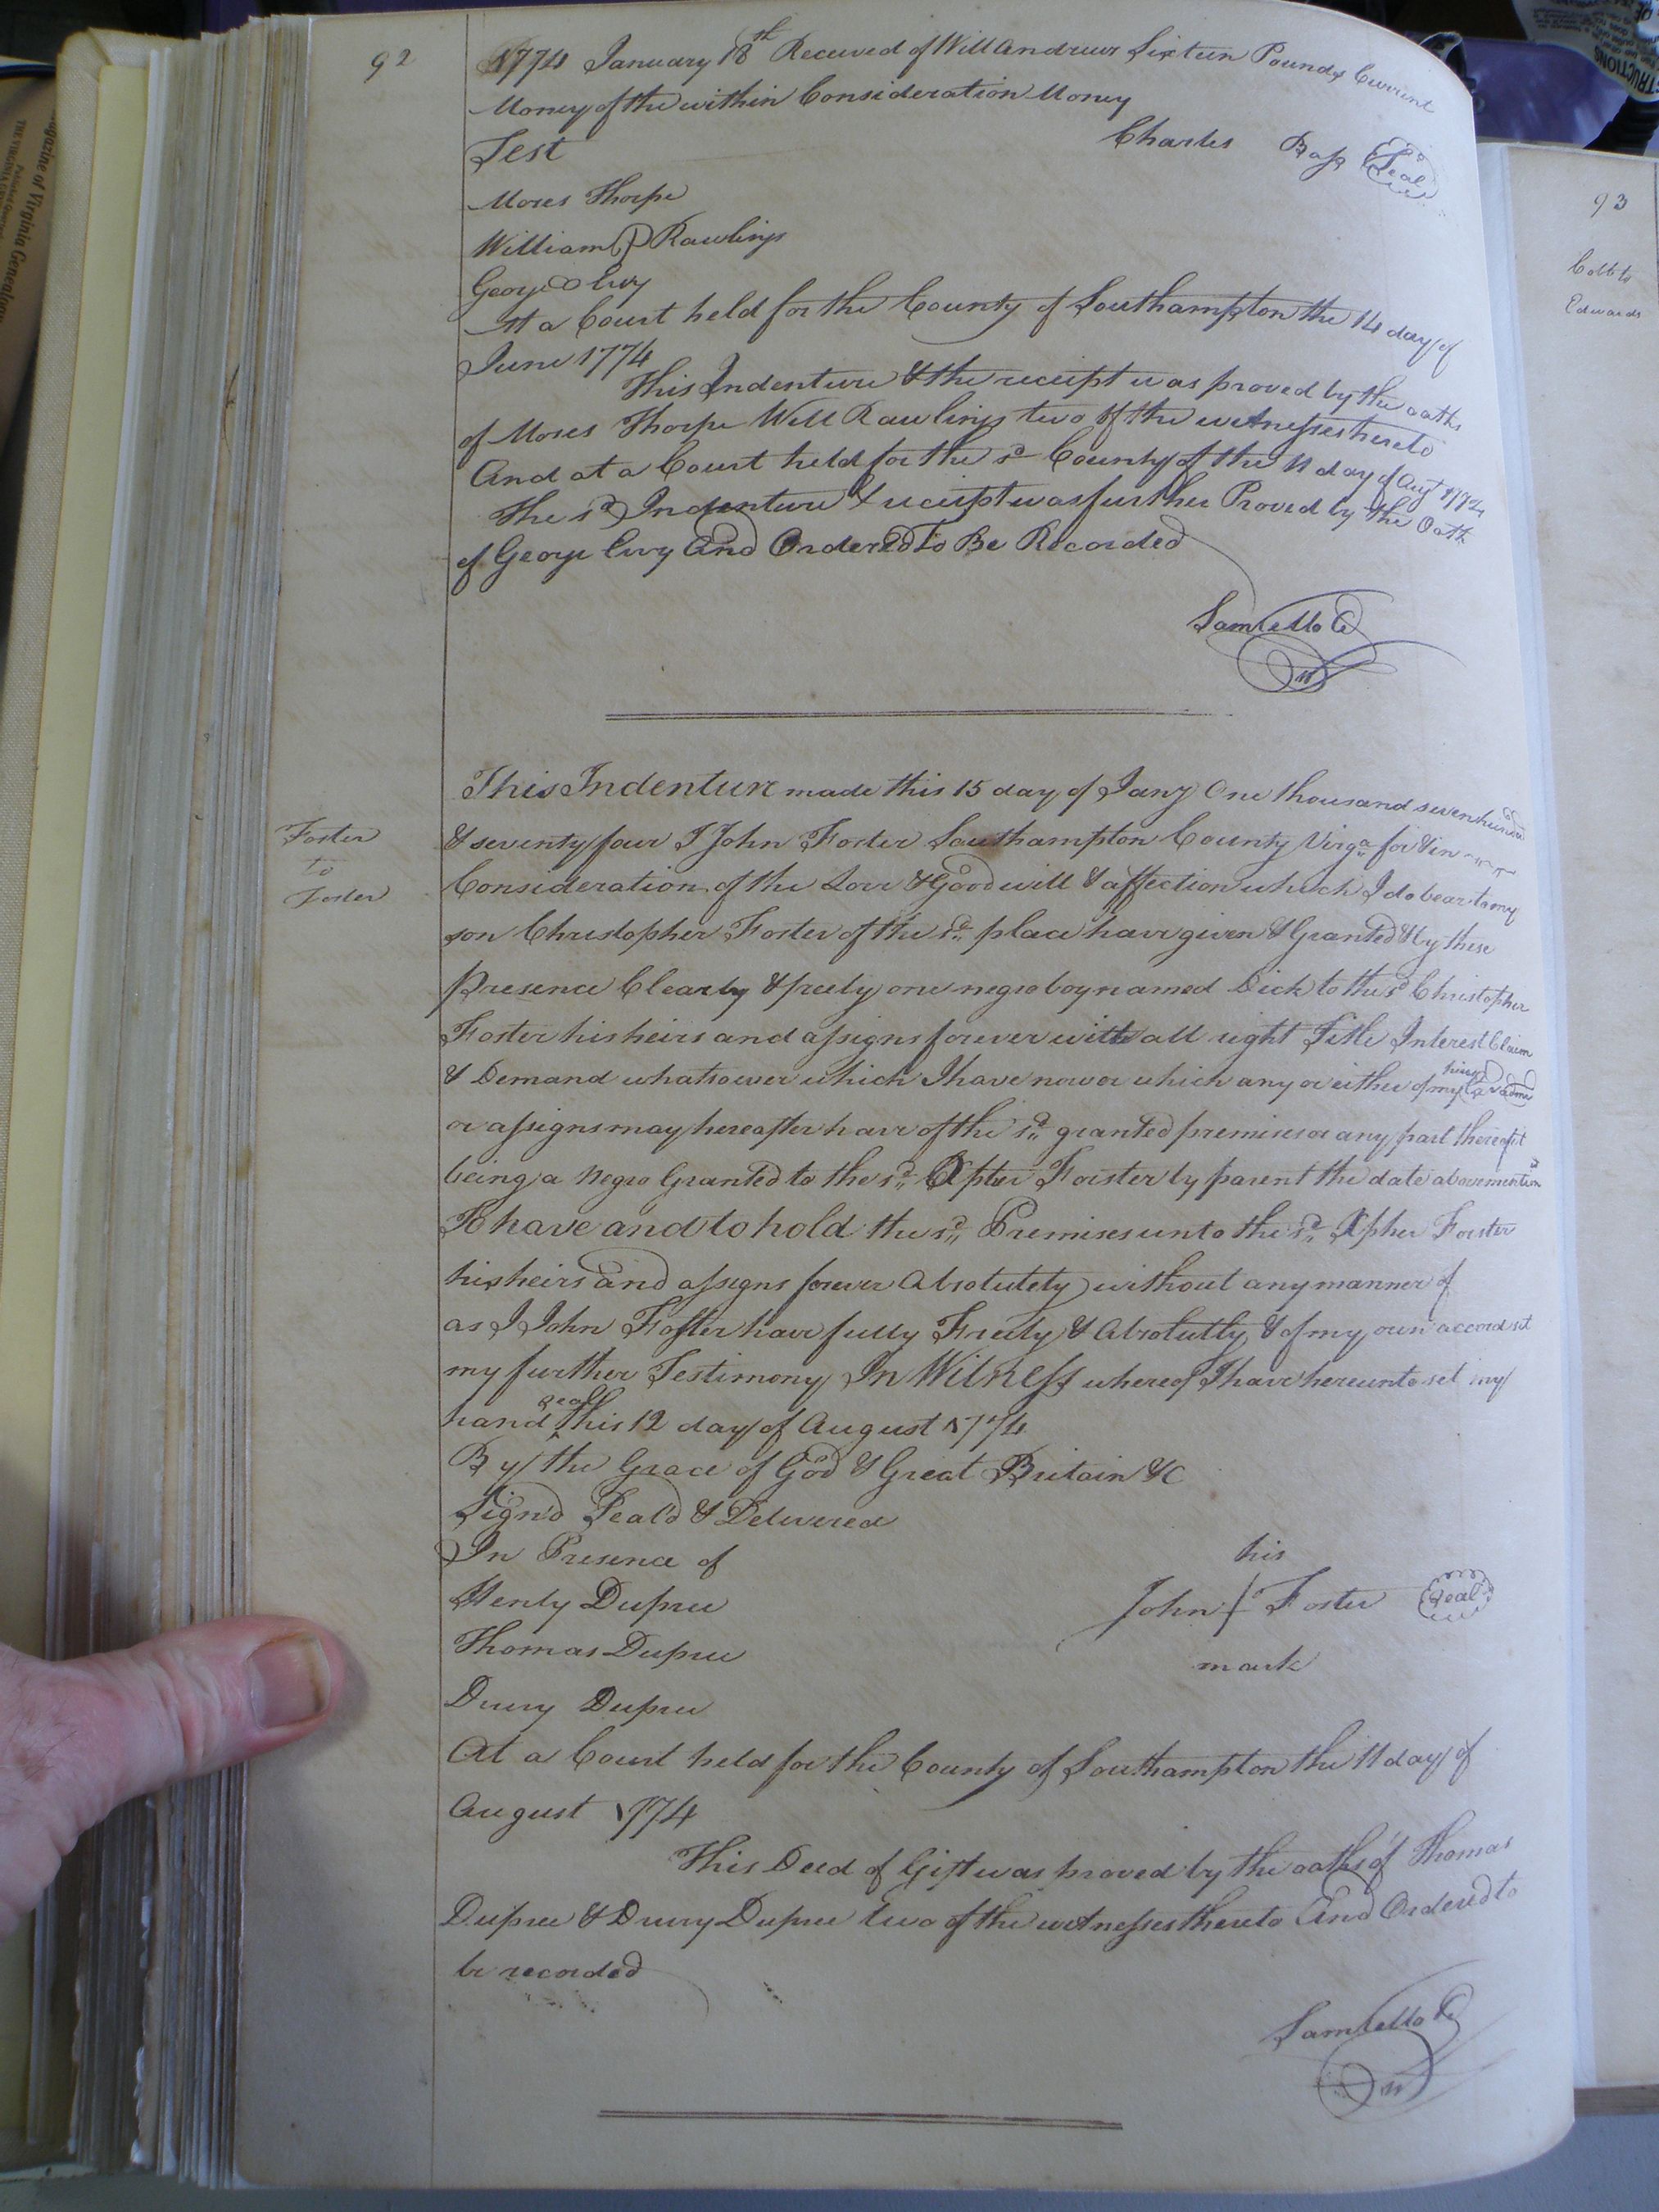 92
1774 January 18th Received of Will Andrews Sixteen Pounds Current
Money of the within Consideration Money
Test
Charles Bass Seal
Moses Thorpe
William Rawlings
George Ivy
At a Court held for the County of Southampton the 14 day of
June 1774
This Indenture & the receipt was proved by the oaths
of Moses Thorpe Will Rawlings two of the witnesses hereto
And at a Court held for the sd County of the 11 day of Augt 1774
The sd Indenture & receipt was further Proved by the Oath
of George Ivy And Ordered To Be Recorded
Saml Kello
This Indenture made this 15 day of Jany One thousand seven hundred
Foster
to
Foster
& seventy four I John Foster Southampton County Virga for & in
Consideration of the Love & Good will & affection which I do bear to my
son Christopher Foster of the sd place have given & Granted & by these
Presence Clearly & freely one negro boy named Dick to the sd Christopher
Foster his heirs and assigns forever with all right Title Interest Claim
& Demand whatsoever which I have now or which any or either of my heirs
or assigns may hereafter have of the sd granted premises or any part thereof it
being a Negro Granted to the sd Xpher Forster by parent the date abovemention
To have and to hold the sd Premises unto the sd Xpher Forster
his heirs and assigns forever Absolutely without any manner of
as I John Foster have fully Freely & Absolutly & of my own accord set
my further Testimony In Witness whereof I have hereunto set my
hand seal this 12 day of August 1774
By the Grace of God & Great Britain &c
Signd Seald & Delivered
In Presence of
his
Henly Dupree
John Foster Seal
Thomas Dupree
mark
Drury Dupree
At a Court held for the County of Southampton the 11 day of
August 1774
This Deed of Gift was proved by the oaths of Thomas
Dupree & Drury Dupree two of the witnesses thereto And Ordered to
be recorded
Saml Kello
93
Cobb to
Edwards
Magazine of Virginia Genealogy